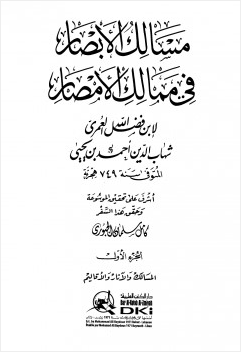 مسالك الأبصار
في ممالك الأمصار
لابن فضل الله العمري
شهاب الدين أحمد بن يحيى
المتوفى سنة ٧٤٩ هجرية
أشرف على تحقيق الموسوعة
وحقق هذا السفر
كامل سلمان الجبوري
الجزء الأول
المسالك والآثار والأقاليم
دار الكتب العلمية
Dar Al-Kotob Al-Ilmiyah
DKi